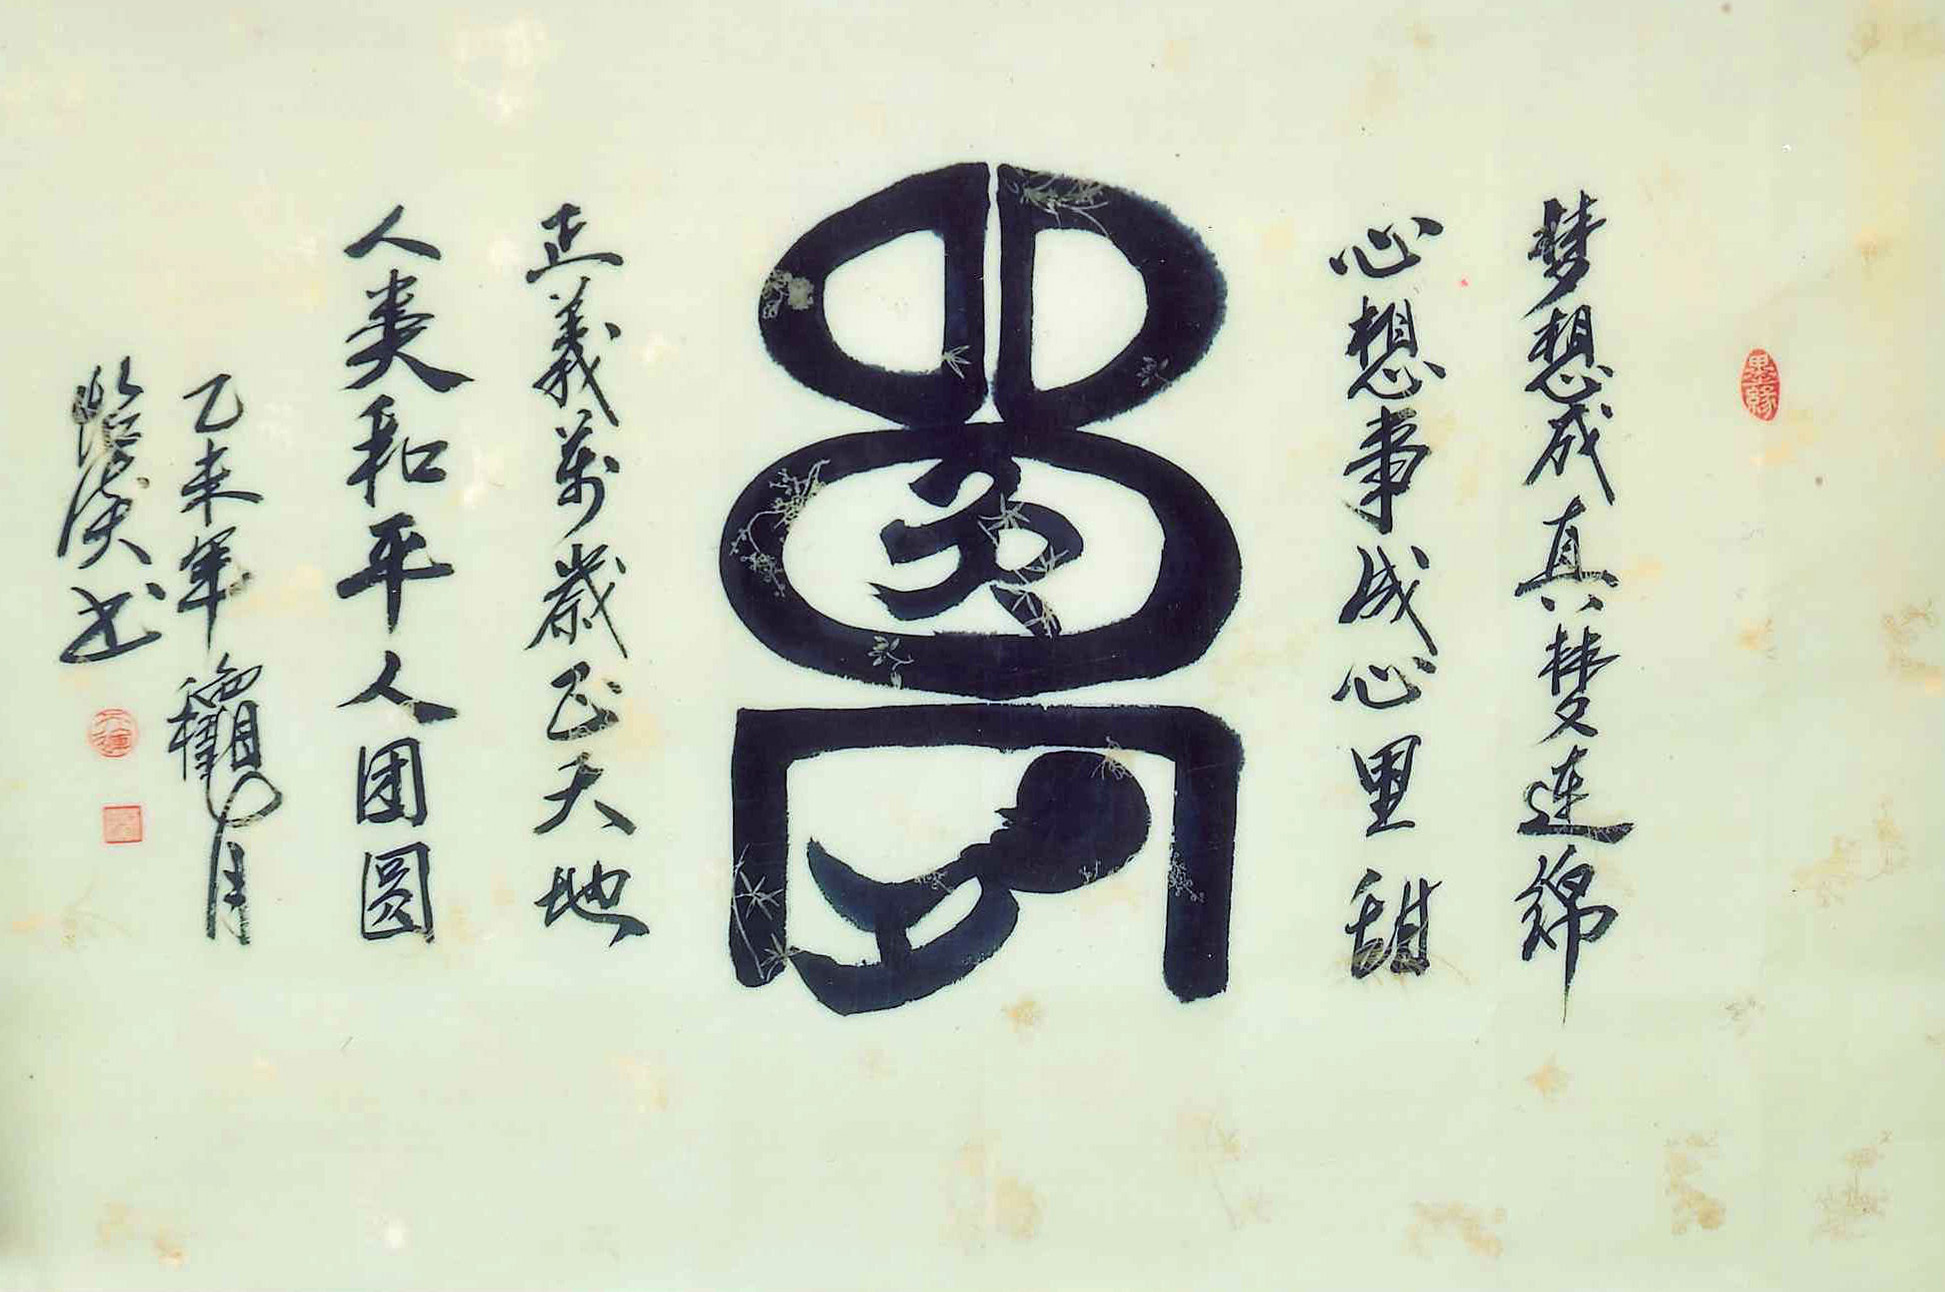 墨缘
梦想成真梦连绵
心想事成心里甜
正義萬歲正天地
人类和平人团圆
乙未年
书